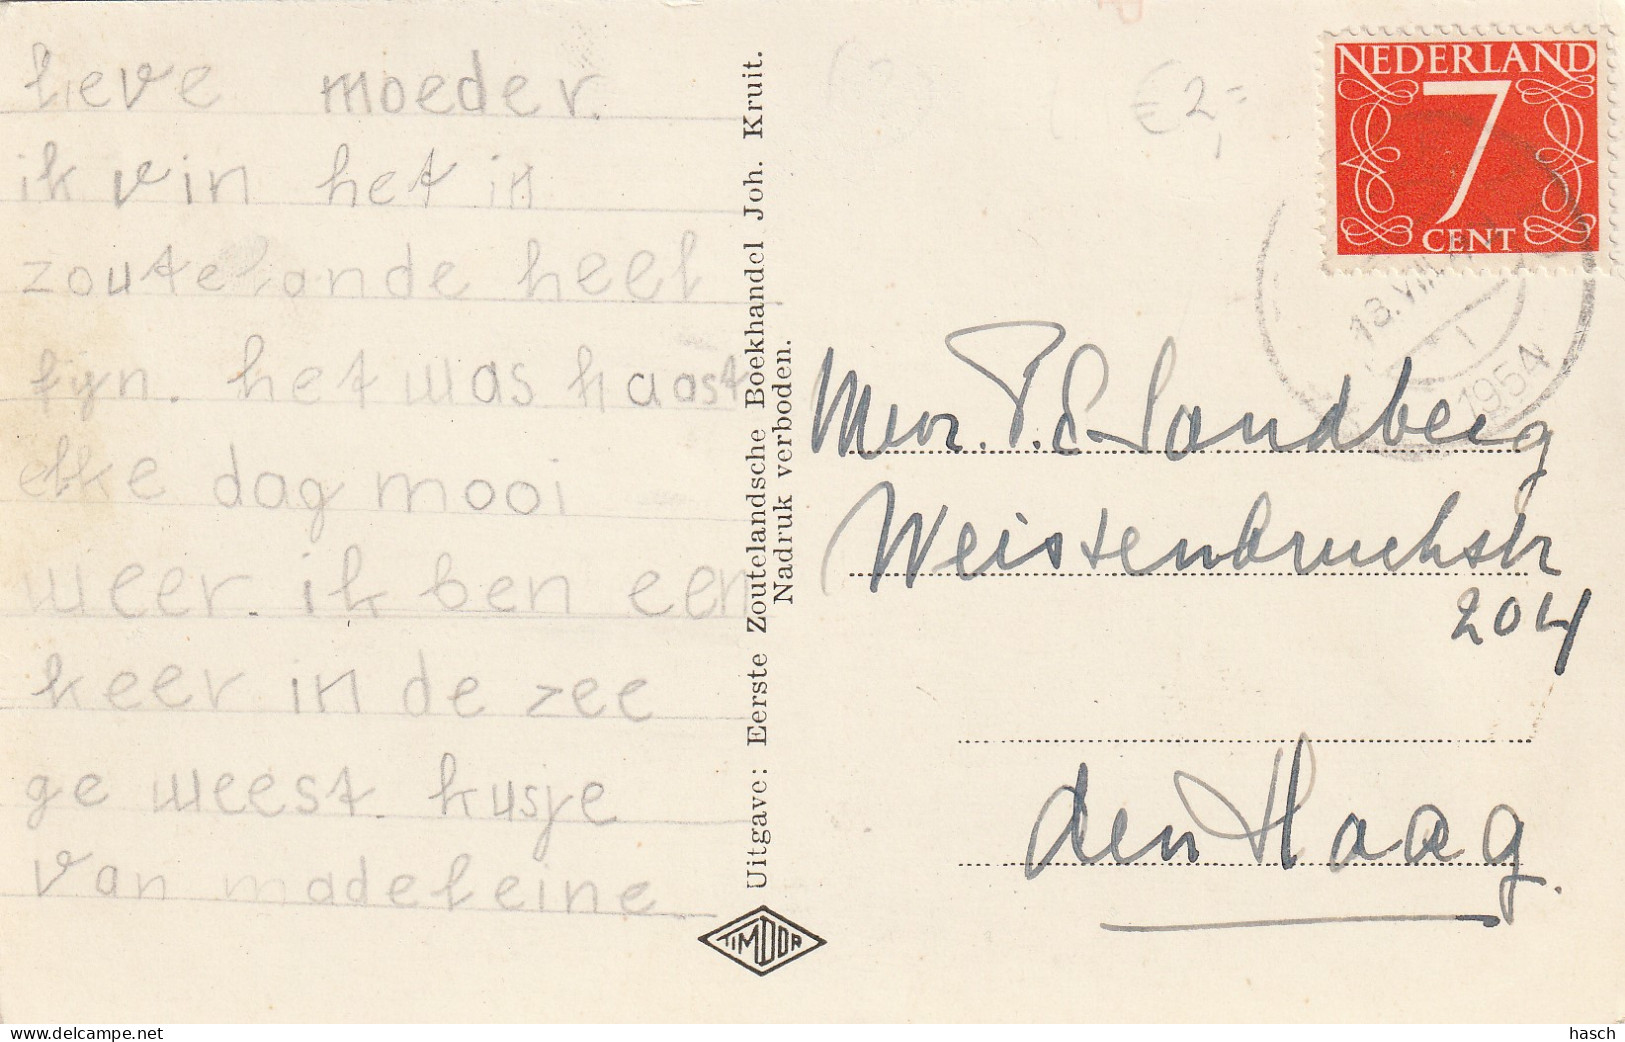 lieve moeder.
ik vin het in
zoutelande heel
fijn. het was haast
elke dag mooi
weer. ik ben een
keer in de zee
ge weest. kusje
van madeleine
Uitgave: Eerste Zoutelandsche Boekhandel Joh. Kruit.
Nadruk verboden.
TIMDOR
€2,=
NEDERLAND
7
CENT
18.VIII
1
1954
Mevr. P. E. Sandberg
Weistenbruchstr
204
den Haag.
delcampe.net
hasch